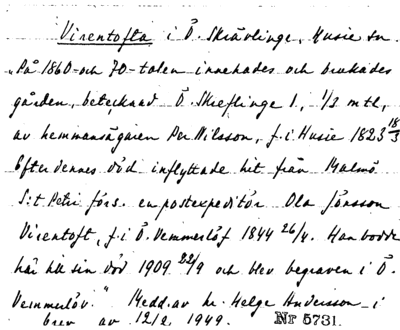 Virentofta i Ö. Skrävlinge, Husie sn.
"På 1860- och 70-talen innehades och brukades
gården, betecknad Ö. Skreflinge 1, 1/2 mtl,
av hemmansägaren Per Nilsson, f. i Husie 1823 18/3
Efter dennes död inflyttade hit från Malmö
S:t Petri förs. en postexpeditör Ola Jönsson
Virentoft, f. i Ö. Vemmerlöf 1844 26/4. Han bodde
här till sin död 1909 22/9 och blev begraven i Ö.
Vemmerlöv." Medd. av hr. Helge Andersson i
brev av 12/2 1949. Nr 5731.